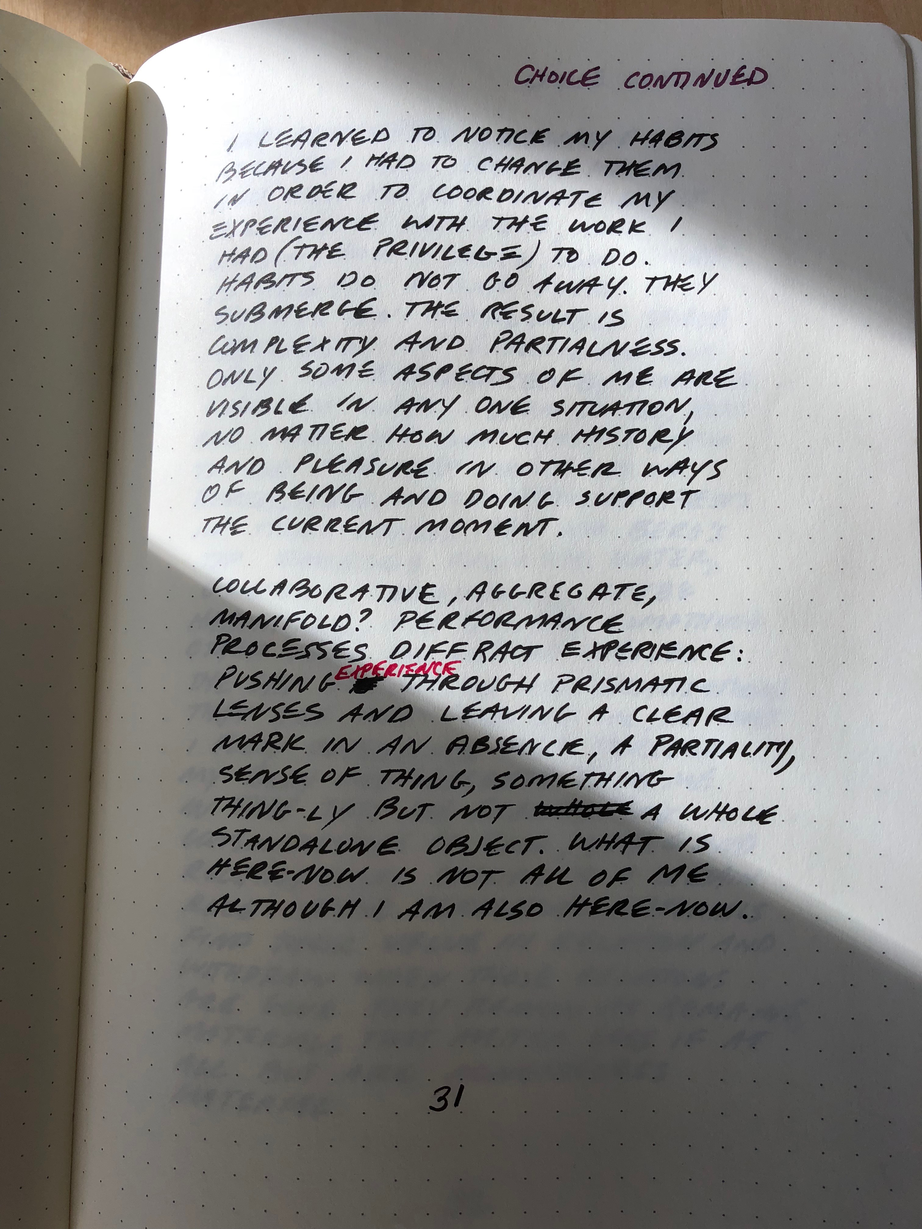 CHOICE CONTINUED
I LEARNED TO NOTICE MY HABITS
BECAUSE I HAD TO CHANGE THEM
IN ORDER TO COORDINATE MY
EXPERIENCE WITH THE WORK I
HAD (THE PRIVILEGE) TO DO.
HABITS DO NOT GO AWAY. THEY
SUBMERGE. THE RESULT IS
COMPLEXITY AND PARTIALNESS.
ONLY SOME ASPECTS OF ME ARE
VISIBLE IN ANY ONE SITUATION,
NO MATTER HOW MUCH HISTORY
AND PLEASURE IN OTHER WAYS
OF BEING AND DOING SUPPORT
THE CURRENT MOMENT.
COLLABORATIVE, AGGREGATE,
MANIFOLD? PERFORMANCE
PROCESSES DIFFRACT EXPERIENCE:
PUSHING EXPERIENCE THROUGH PRISMATIC
LENSES AND LEAVING A CLEAR
MARK IN AN ABSENCE, A PARTIALITY,
SENSE OF THING, SOMETHING
THING-LY BUT NOT A WHOLE
STANDALONE OBJECT. WHAT IS
HERE-NOW IS NOT ALL OF ME
ALTHOUGH I AM ALSO HERE-NOW.
31